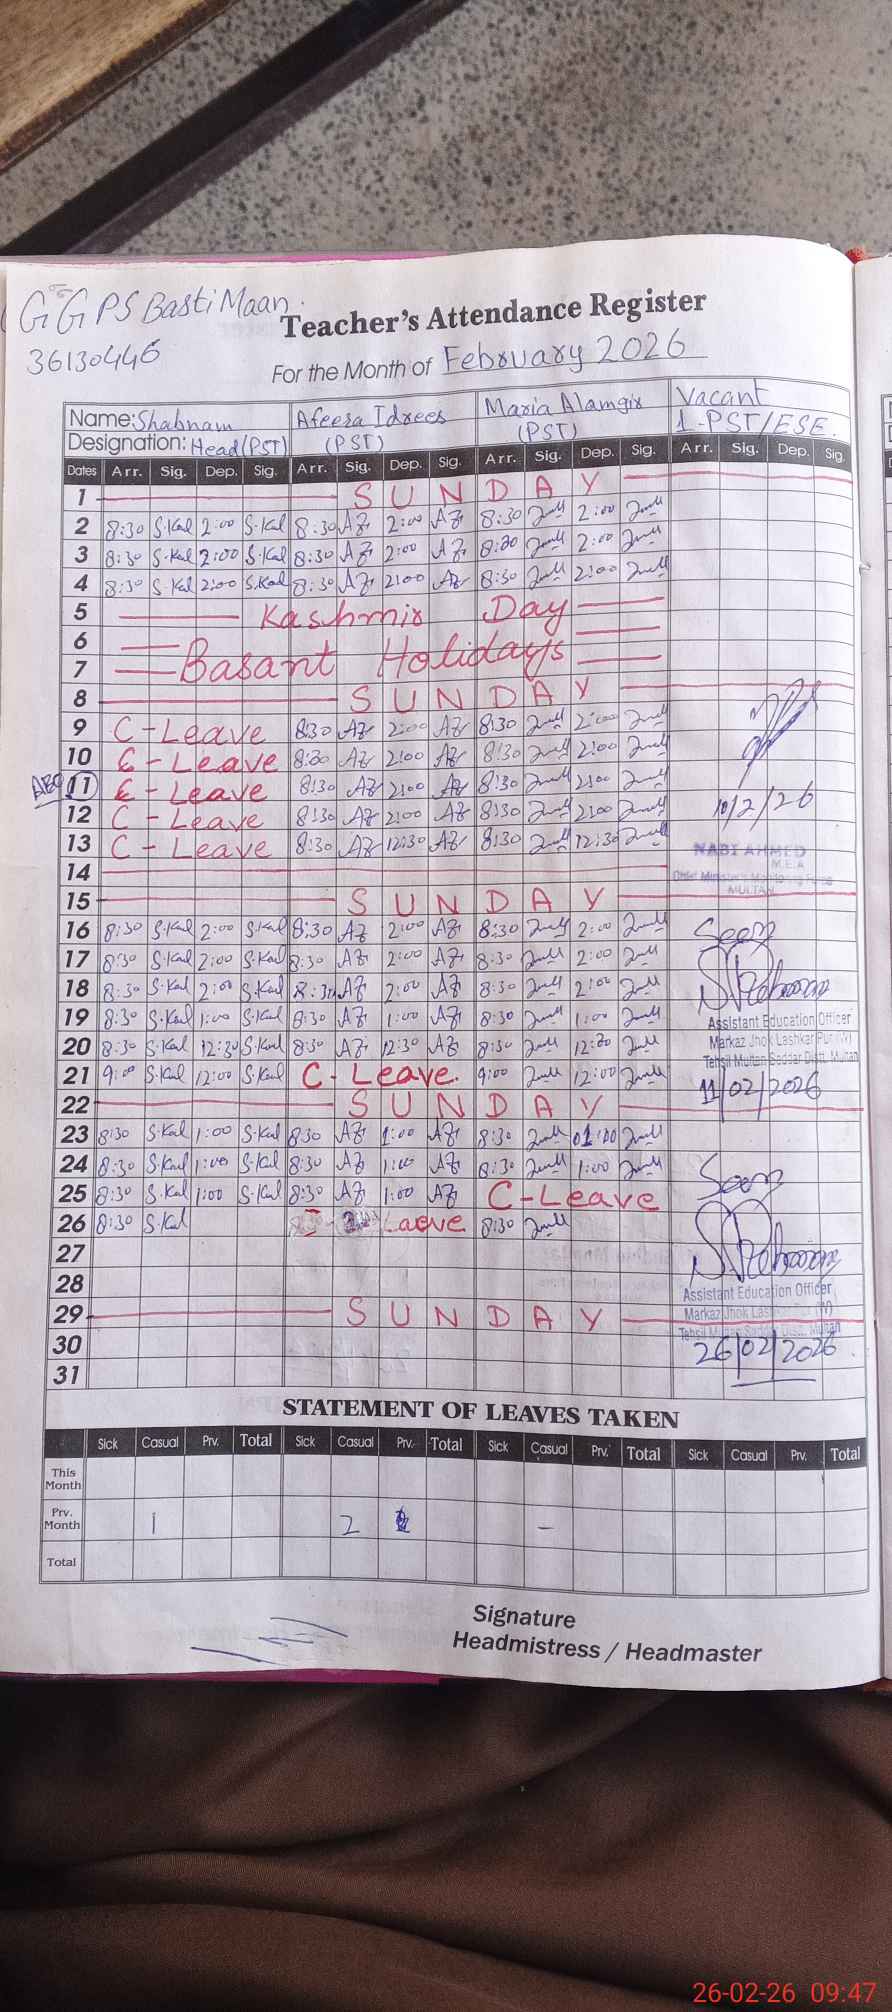 GGPS Basti Maan.
Teacher's Attendance Register
36130446
For the Month of February 2026
Name: Shabnam Afeera Idrees Maria Alamgir Vacant
Designation: Head (PST) (PST) (PST) 1-PST/ESE.
Dates Arr. Sig. Dep. Sig. Arr. Sig. Dep. Sig. Arr. Sig. Dep. Sig. Arr. Sig. Dep. Sig.
1 SUNDAY
2 8:30 S.Kal 2:00 S.Kal 8:30 AZ 2:00 AZ 8:30 2:00
3 8:30 S.Kal 2:00 S.Kal 8:30 AZ 2:00 AZ 8:30 2:00
4 8:30 S.Kal 2:00 S.Kal 8:30 AZ 2:00 AZ 8:30 2:00
5 Kashmir Day
6
7 Basant Holidays
8 SUNDAY
9 C-Leave 8:30 AZ 2:00 AZ 8:30 2:00
10 C-Leave 8:30 AZ 2:00 AZ 8:30 2:00
11 C-Leave 8:30 AZ 2:00 AZ 8:30 2:00
12 C-Leave 8:30 AZ 2:00 AZ 8:30 2:00 10/2/26
13 C-Leave 8:30 AZ 12:30 AZ 8:30 12:30 NABI AHMED
M.E.A
14 Chief Minister's Monitoring Force
MULTAN
15 SUNDAY
16 8:30 S.Kal 2:00 S.Kal 8:30 AZ 2:00 AZ 8:30 2:00 Seen
17 8:30 S.Kal 2:00 S.Kal 8:30 AZ 2:00 AZ 8:30 2:00
18 8:30 S.Kal 2:00 S.Kal 8:30 AZ 2:00 AZ 8:30 2:00
19 8:30 S.Kal 1:00 S.Kal 8:30 AZ 1:00 AZ 8:30 1:00 Assistant Education Officer
20 8:30 S.Kal 12:30 S.Kal 8:30 AZ 12:30 AZ 8:30 12:30 Markaz Jhok Lashkar Pur (W)
Tehsil Multan Saddar Distt. Multan
21 9:00 S.Kal 12:00 S.Kal C-Leave. 9:00 12:00 11/02/2026
22 SUNDAY
23 8:30 S.Kal 1:00 S.Kal 8:30 AZ 1:00 AZ 8:30 01:00
24 8:30 S.Kal 1:00 S.Kal 8:30 AZ 1:00 AZ 8:30 1:00 Seen
25 8:30 S.Kal 1:00 S.Kal 8:30 AZ 1:00 AZ C-Leave
26 8:30 S.Kal Laeve 8:30
27
28 Assistant Education Officer
29 SUNDAY Markaz Jhok Lashkar Pur (W)
Tehsil Multan Saddar Distt. Multan
30 26/02/2026.
31
STATEMENT OF LEAVES TAKEN
Sick Casual Prv. Total Sick Casual Prv. Total Sick Casual Prv. Total Sick Casual Prv. Total
This
Month
Prv.
Month 1 2 -
Total
Signature
Headmistress / Headmaster
26-02-26 09:47